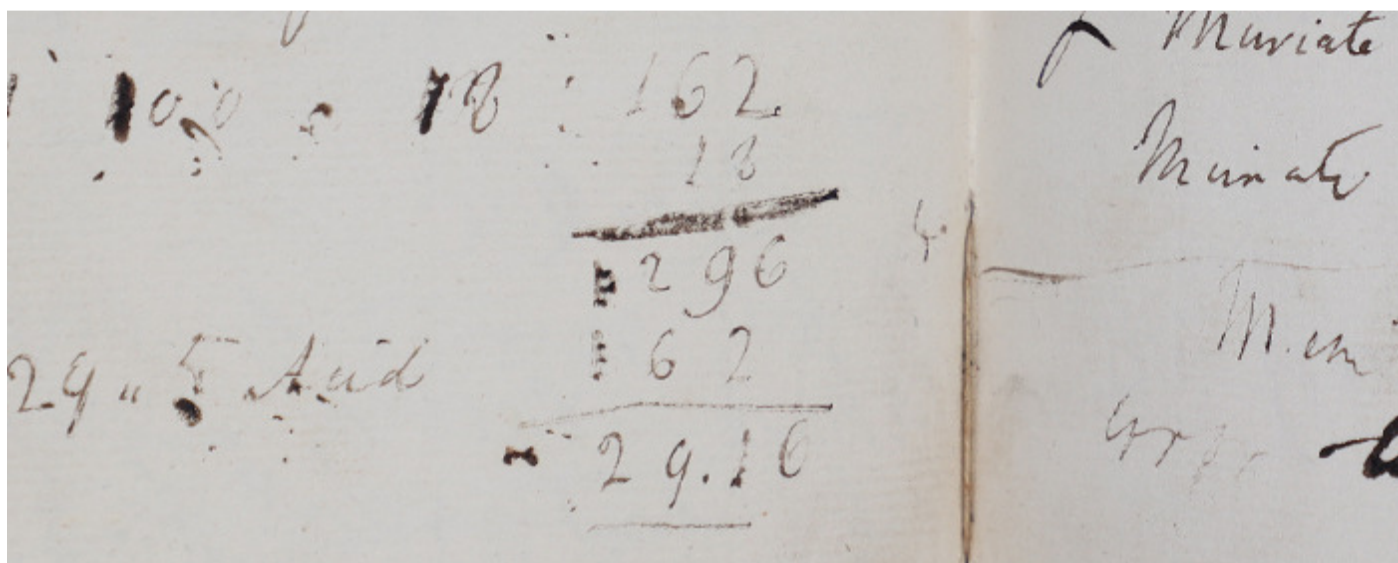 100 : 18 :: 162
18
1296
162
29.16
29 " 5 Acid
Muriate
Muriate